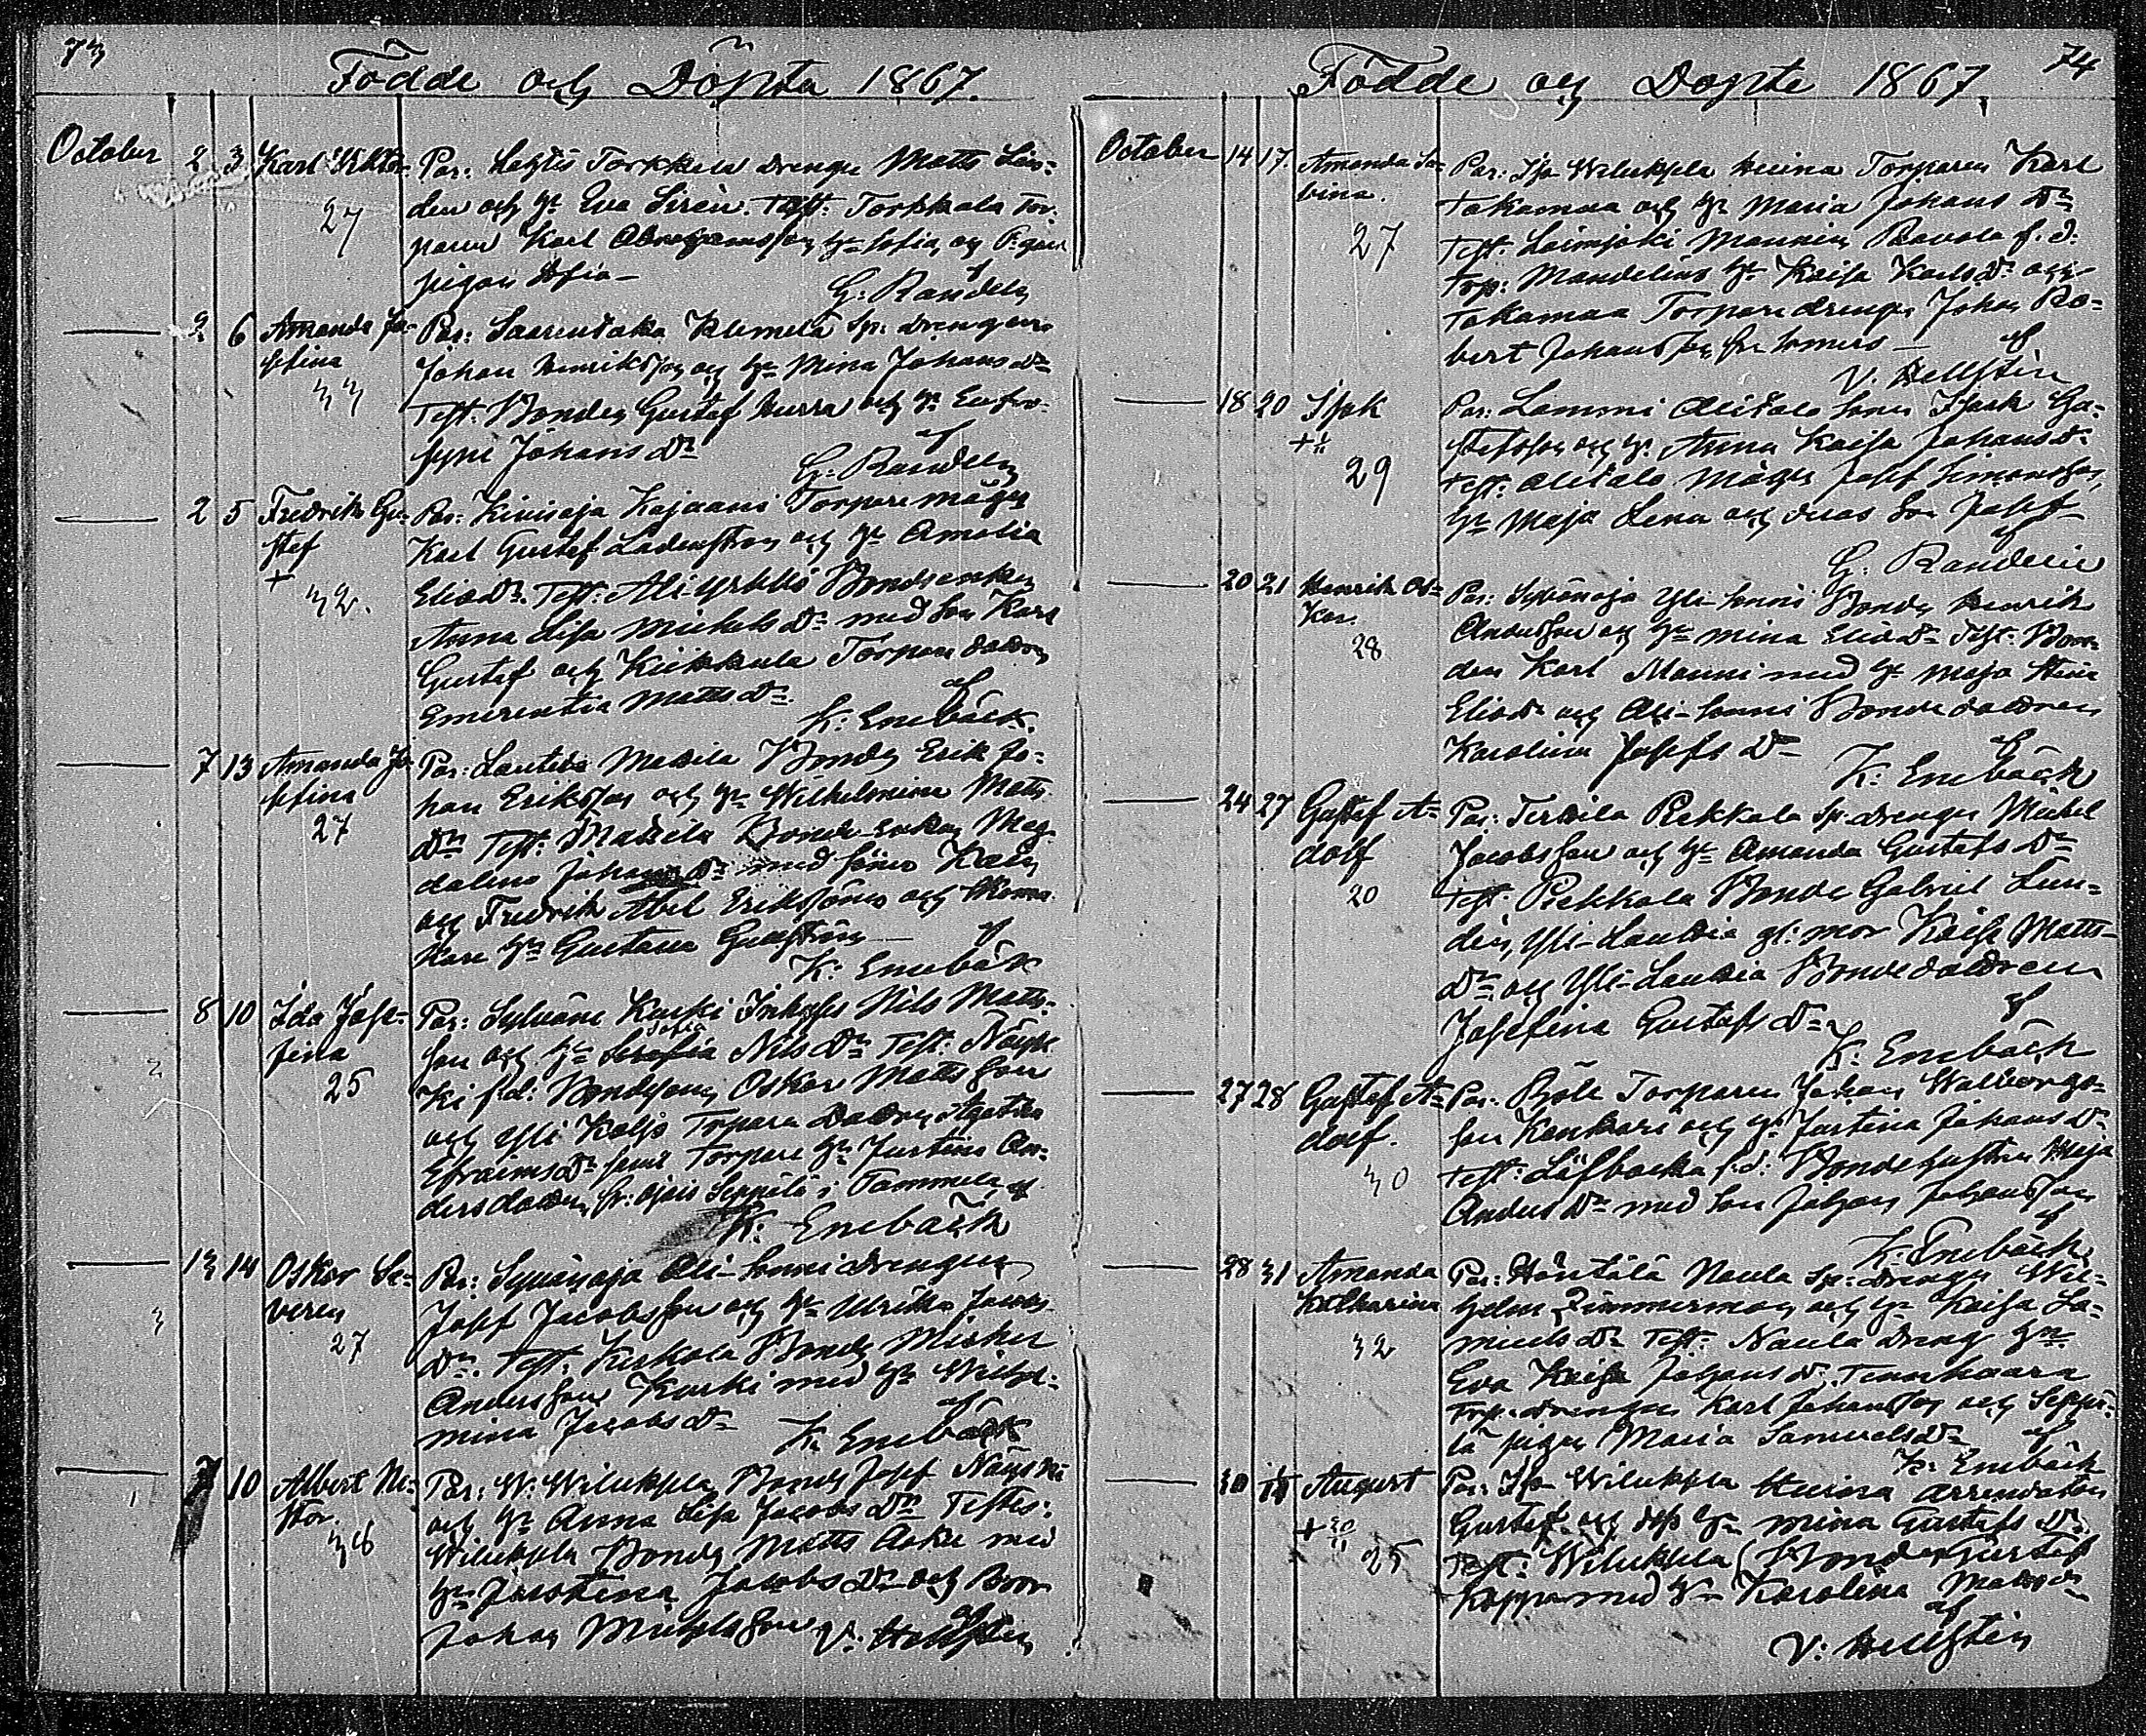 73
Födde och Döpta 1867.
October 2 3 Karl Viktor
27
Par: Torkkela drengen Matts Lin-
den och h. Eva Siren. Test: Torkkala Tor-
paren Karl Abrahamsson h. Sofia og
pigan Sofia af
G: Randelin
2 6 Amanda Jo-
sefina
33
Par: Saarentaka Klemelä sp. drengen
Johan Henriksson och h. Mina Johans dr
Test: Bonden Gustaf Hurra och h. Eufro-
syne Johans dr af
G: Randelin
2 5 Fredrik Gu-
staf
+
32.
Par: Kivioja Kajaani Torpare mågen
Karl Gustaf Ladenström och h. Amalia
Elias dr. Test: Ali Yrkkö Bondeenkan
Anna Lisa Michels dr med son Karl
Gustaf och Kiekkala Torpare dottren
Emerentia Matts dr. af
K: Enebäck.
7 13 Amanda Jo-
sefina
27
Par: Lautela Mattila Bonden Erik Jo-
han Eriksson och h. Wilhelmina Matts
dr Test: Mattila Bonde Enkan Mag-
dalena Johans dr med söner Karl
och Fredrik Abel Erikssöner och
h. Gustava af
K: Enebäck
8 10 Ida Jose-
fina
25
Par: Sylvänä Kurki Inhyses Nils Matts-
son och h. Sofia Nils dr Test: Näyk-
ki f.d: Bondeson Oskar Mattsson
och Yli Koljo Torpare dottren Agatha
Efraims dr samt Torpare h. Justina An-
ders dotter fr: Ojais Seppälä i Tammela af
K: Enebäck
13 14 Oskar Se-
veren
27
Par: Syvänoja Ali-Sonni drengen
Josef Jacobsson och h. Ulrika Jacobs
dr. Test: Kerkola Bonden Michel
Andersson Kurki med h. Wilhel-
mina Jacobs dr af
K: Enebäck
7 10 Albert Ne-
stor.
36
Par: W. Wiluksela Bonden Josef Näykki
och h. Anna Lisa Jacobs dr Testes:
Wiluksela Bonden Matts med
h. Jacobs dr och
Johan Michelsson af V: Hellstén
74
Födde og Döpte 1867.
October 14 17. Amanda Sa-
bina.
27
Par: Iso Wiluksela Torparen Karl
Takamaa och h. Maria Johans dr
Test: Loimijoki Mannin Paavola f.d.
Torp: Mandelins h. Kaisa Karls dr och
Takamaa Torpare drengen Johan Ro-
bert Johansson fr. Somero af
V. Hellstén
18 20 Isak
29
Par: Lammi Alitalo sonen Isak Gu-
stafsson och h. Anna Kaisa Johans dr
Test: Alitalo Mågen Josef Simonsson,
h. Maja Lena och deras son Josef
af
G: Randelin
20 21 Henrik Os-
kar.
28
Par: Syvänoja Yli-Sonni Bonden Henrik
Andersson och h. Mina Elias dr Test: Bon-
den Karl Manni med h. Maja Stina
Elias dr och Ali-Sonni Bonde dottren
Karolina Josefs dr af
K: Enebäck
24 27 Gustaf A-
dolf
20
Par: Terttilä Pekkala sp. drengen Michel
Jacobsson och h. Amanda Gustafs dr
Test: Pekkala Bonden Gabriel Lin-
den, Yli-Lauttia gl: mor Kaisa Matts-
dr och Yli-Lauttia Bondedottren
Josefina Gustafs dr af
K: Enebäck
27 28 Gustaf A-
dolf.
30
Par: Torparen Johan
son Kankare och h. Justina Johans dr
Test: Löfbacka f.d: Bondehustrun Maja
Anders dr med son Johan Johansson
af
K. Enebäck
28 31 Amanda
Katharina
32
Par: Höntälä Naula sp: drengen Wil-
helm Zimmerman och h. Kaisa Sa-
muels dr Test: Naula dreng h.
Eva Kaisa Johans dr,
Torp. drengen Karl Johansson och Seppä-
lä pigan Maria Samuels dr af
K: Enebäck
30 August
25
Par: Iso Wiluksela arrendatorn
Gustaf och dess h. Mina Gustafs dr
Test: Wiluksela Bonden Gustaf
med h. Karolina Matts dr
af
V: Hellstén